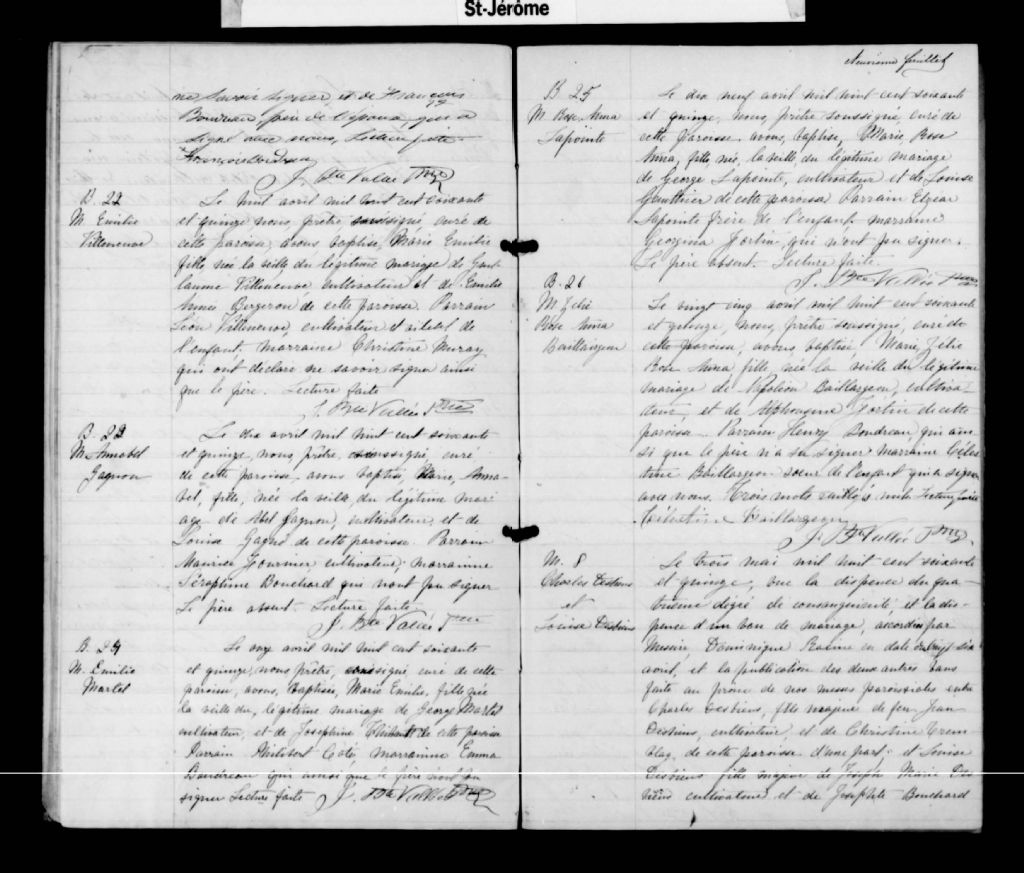 St-Jérôme
ne savoir signer, et de François
Boudreau père de l'époux qui a
signé avec nous, Lecture faite
François Boudreau
J. Bte Vallée Ptre
B. 22
M. Emilie
Villeneuve
Le huit avril mil huit cent soixante
et quinze nous, prêtre soussigné, curé de
cette paroisse, avons baptisé, Marie Emilie
fille, née la veille du légitime mariage de Guil
laume Villeneuve cultivateur et de Emilie
Aimée Bergeron de cette paroisse. Parrain
Léon Villeneuve, cultivateur et
l'enfant, marraine Christine Muray
qui ont déclaré ne savoir signer ainsi
que le père. Lecture faite
J. Bte Vallée Ptre
B. 23
M. Annabel
Gagnon
Le dix avril mil huit cent soixante
et quinze, nous, prêtre, soussigné, curé
de cette paroisse, avons baptisé, Marie, Anna-
bel, fille, née la veille, du légitime mari
age de Abel Gagnon, cultivateur, et de
Louise Gagné de cette paroisse. Parrain
Maurice Fournier cultivateur; marrainne
Séraphine Bouchard qui n'ont pu signer
Le père absent. Lecture faite
J. Bte Vallée Ptre
B. 24
M. Emilie
Martel
Le onze avril mil huit cent soixante
et quinze, nous prêtre, soussigné curé de cette
paroisse, avons, baptisée, Marie Emilie, fille née
la veille du, légitime mariage de George Martel
cultivateur, et de Josephine Thibault de cette paroisse
Parrain Philibert Coté marrainne Emma
Boudreau qui ainsi que le père n'ont pu
signer Lecture faite J. Bte Vallée Ptre
Neuvième feuillet
B 25
M. Rose Anna
Lapointe
Le dix neuf avril mil huit cent soixante
et quinze, nous, prêtre soussigné, curé de
cette paroisse, avons, baptisé, Marie, Rose
Anna, fille, née, la veille, du légitime mariage
de George Lapointe, cultivateur et de Louise
Gauthier de cette paroisse Parrain Elzear
Lapointe frère de l'enfant marraine
Georgina Fortin, qui n'ont pu signer.
Le père absent. Lecture faite.
J. Bte Vallée Ptre
B. 26
M. Zélie
Rose Anna
Baillargeon
Le vingt cinq avril mil huit cent soixante
et quinze, nous, prêtre soussigné, curé de
cette paroisse, avons baptisé, Marie, Zélie
Rose Anna, fille, née la veille du légitime
mariage de Napoléon Baillargeon, cultiva-
teur, et de Alphonsine Fortin de cette
paroisse. Parrain Henry Boudreau, qui ain
si que le père n'a su signer marraine Céles
tine Baillargeon soeur de l'enfant qui a signé
avec nous. Trois mots rayés nuls Lecture faite
Célestine Baillargeon
J. Bte Vallée Ptre
M. 8
Charles Desbiens
et
Louise Desbiens
Le trois mai mil huit cent soixante
et quinze, vu la dispense du qua-
trième dégré de consanguinité, et la dis-
pense d'un ban de mariage, accordée par
Messire, Dominique Racine en date du vingt six
avril, et la publication des deux autres bans
faite au prone de nos messes paroissiales entre
Charles Desbiens, fils majeur de feu Jean
Desbiens, cultivateur, et de Christine Trem
blay, de cette paroisse d'une part; et Louise
Desbiens fille majeur de Joseph Marie Des
biens cultivateur et de Josephte Bouchard